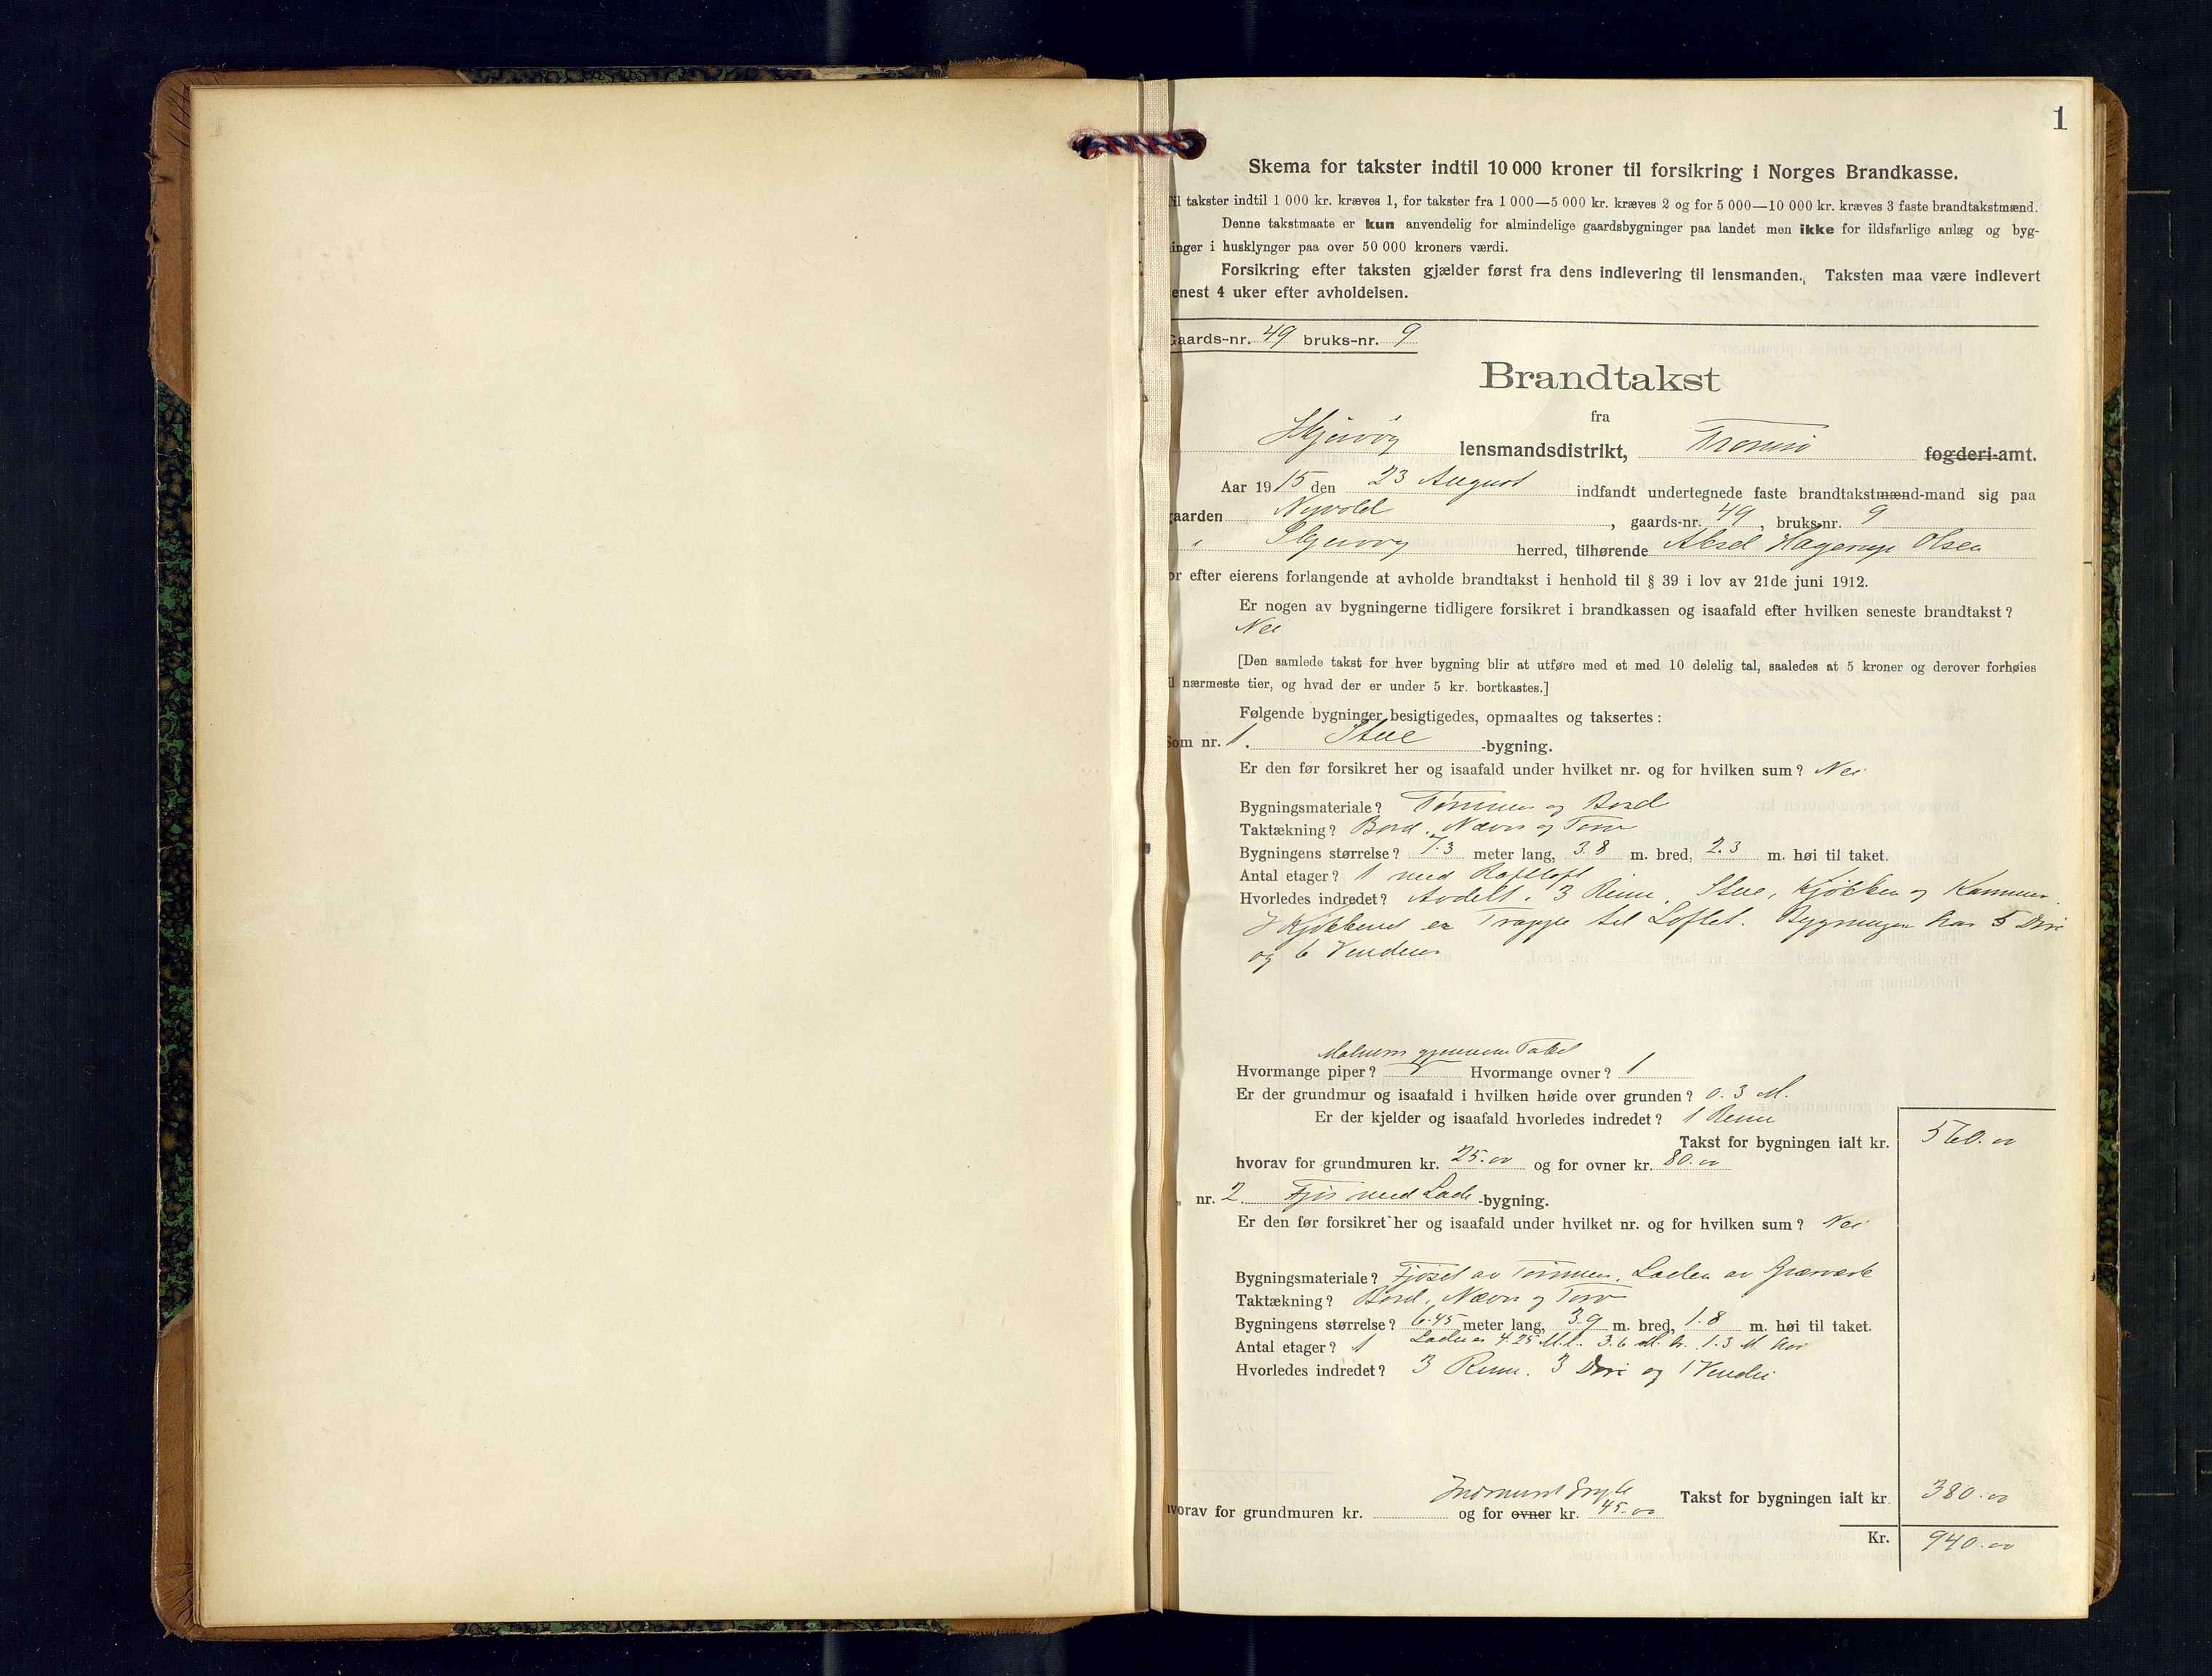 1
Skema for takster indtil 10 000 kroner til forsikring i Norges Brandkasse.
il takster indtil 1 000 kr. kræves 1, for takster fra 1 000—5 000 kr. kræves 2 og for 5 000—10 000 kr. kræves 3 faste brandtakstmænd.
Denne takstmaate er kun anvendelig for almindelige gaardsbygninger paa landet men ikke for ildsfarlige anlæg og byg-
inger i husklynger paa over 50 000 kroners værdi.
Forsikring efter taksten gjælder først fra dens indlevering til lensmanden. Taksten maa være indlevert
enest 4 uker efter avholdelsen.
Gaards-nr. 49 bruks-nr. 9
Brandtakst
fra
Skjervøy lensmandsdistrikt, Tromsø fogderi-amt.
Aar 1915 den 23 August indfandt undertegnede faste brandtakstmænd-mand sig paa
gaarden Nyvold, gaards-nr. 49, bruks-nr. 9
Skjervøy herred, tilhørende Aksel Hagerup Olsen
or efter eierens forlangende at avholde brandtakst i henhold til § 39 i lov av 21de juni 1912.
Er nogen av bygningerne tidligere forsikret i brandkassen og isaafald efter hvilken seneste brandtakst?
Nei
[Den samlede takst for hver bygning blir at utføre med et med 10 delelig tal, saaledes at 5 kroner og derover forhøies
il nærmeste tier, og hvad der er under 5 kr. bortkastes.]
Følgende bygninger besigtigedes, opmaaltes og taksertes:
Som nr. 1. Stue -bygning.
Er den før forsikret her og isaafald under hvilket nr. og for hvilken sum? Nei
Bygningsmateriale? Tømmer og Bord
Taktækning? Bord, Næver og Torv
Bygningens størrelse? 7.3 meter lang, 3.8 m. bred, 2.3 m. høi til taket.
Antal etager? 1 med Røstloft
Hvorledes indredet? Avdelt i 3 Rum. Stue, Kjøkken og Kammer.
I Kjøkkenet er Trappe til Loftet. Bygningen har 5 Døre
og 6 Vinduer
gjennem Taket
Hvormange piper? Hvormange ovner? 1
Er der grundmur og isaafald i hvilken høide over grunden? 0.3 M.
Er der kjelder og isaafald hvorledes indredet? 1 Rum
Takst for bygningen ialt kr. 560.00
hvorav for grundmuren kr. 25.00 og for ovner kr. 80.00
„ nr. 2. Fjøs med Lade -bygning.
Er den før forsikret her og isaafald under hvilket nr. og for hvilken sum? Nei
Bygningsmateriale? Fjøset av Tømmer, Laden av
Taktækning? Bord, Næver og Torv
Bygningens størrelse? 6.45 meter lang, 3.9 m. bred, 1.8 m. høi til taket.
Antal etager? 1 Laden 4.25 M. L. 3.6 M. b. 1.3 M. høi
Hvorledes indredet? 3 Rum. 3 Døre og 1 Vindu
Indmuret Gryte Takst for bygningen ialt kr. 380.00
hvorav for grundmuren kr. og for ovner kr. 45.00
Kr. 940.00